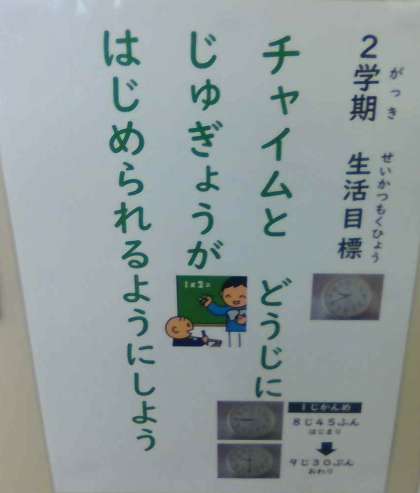 2学期　生活目標
がっき　せいかつもくひょう
チャイムと　どうじに
じゅぎょうが
はじめられるようにしよう
1じかんめ
8じ45ふん
はじまり
9じ30ぷん
おわり